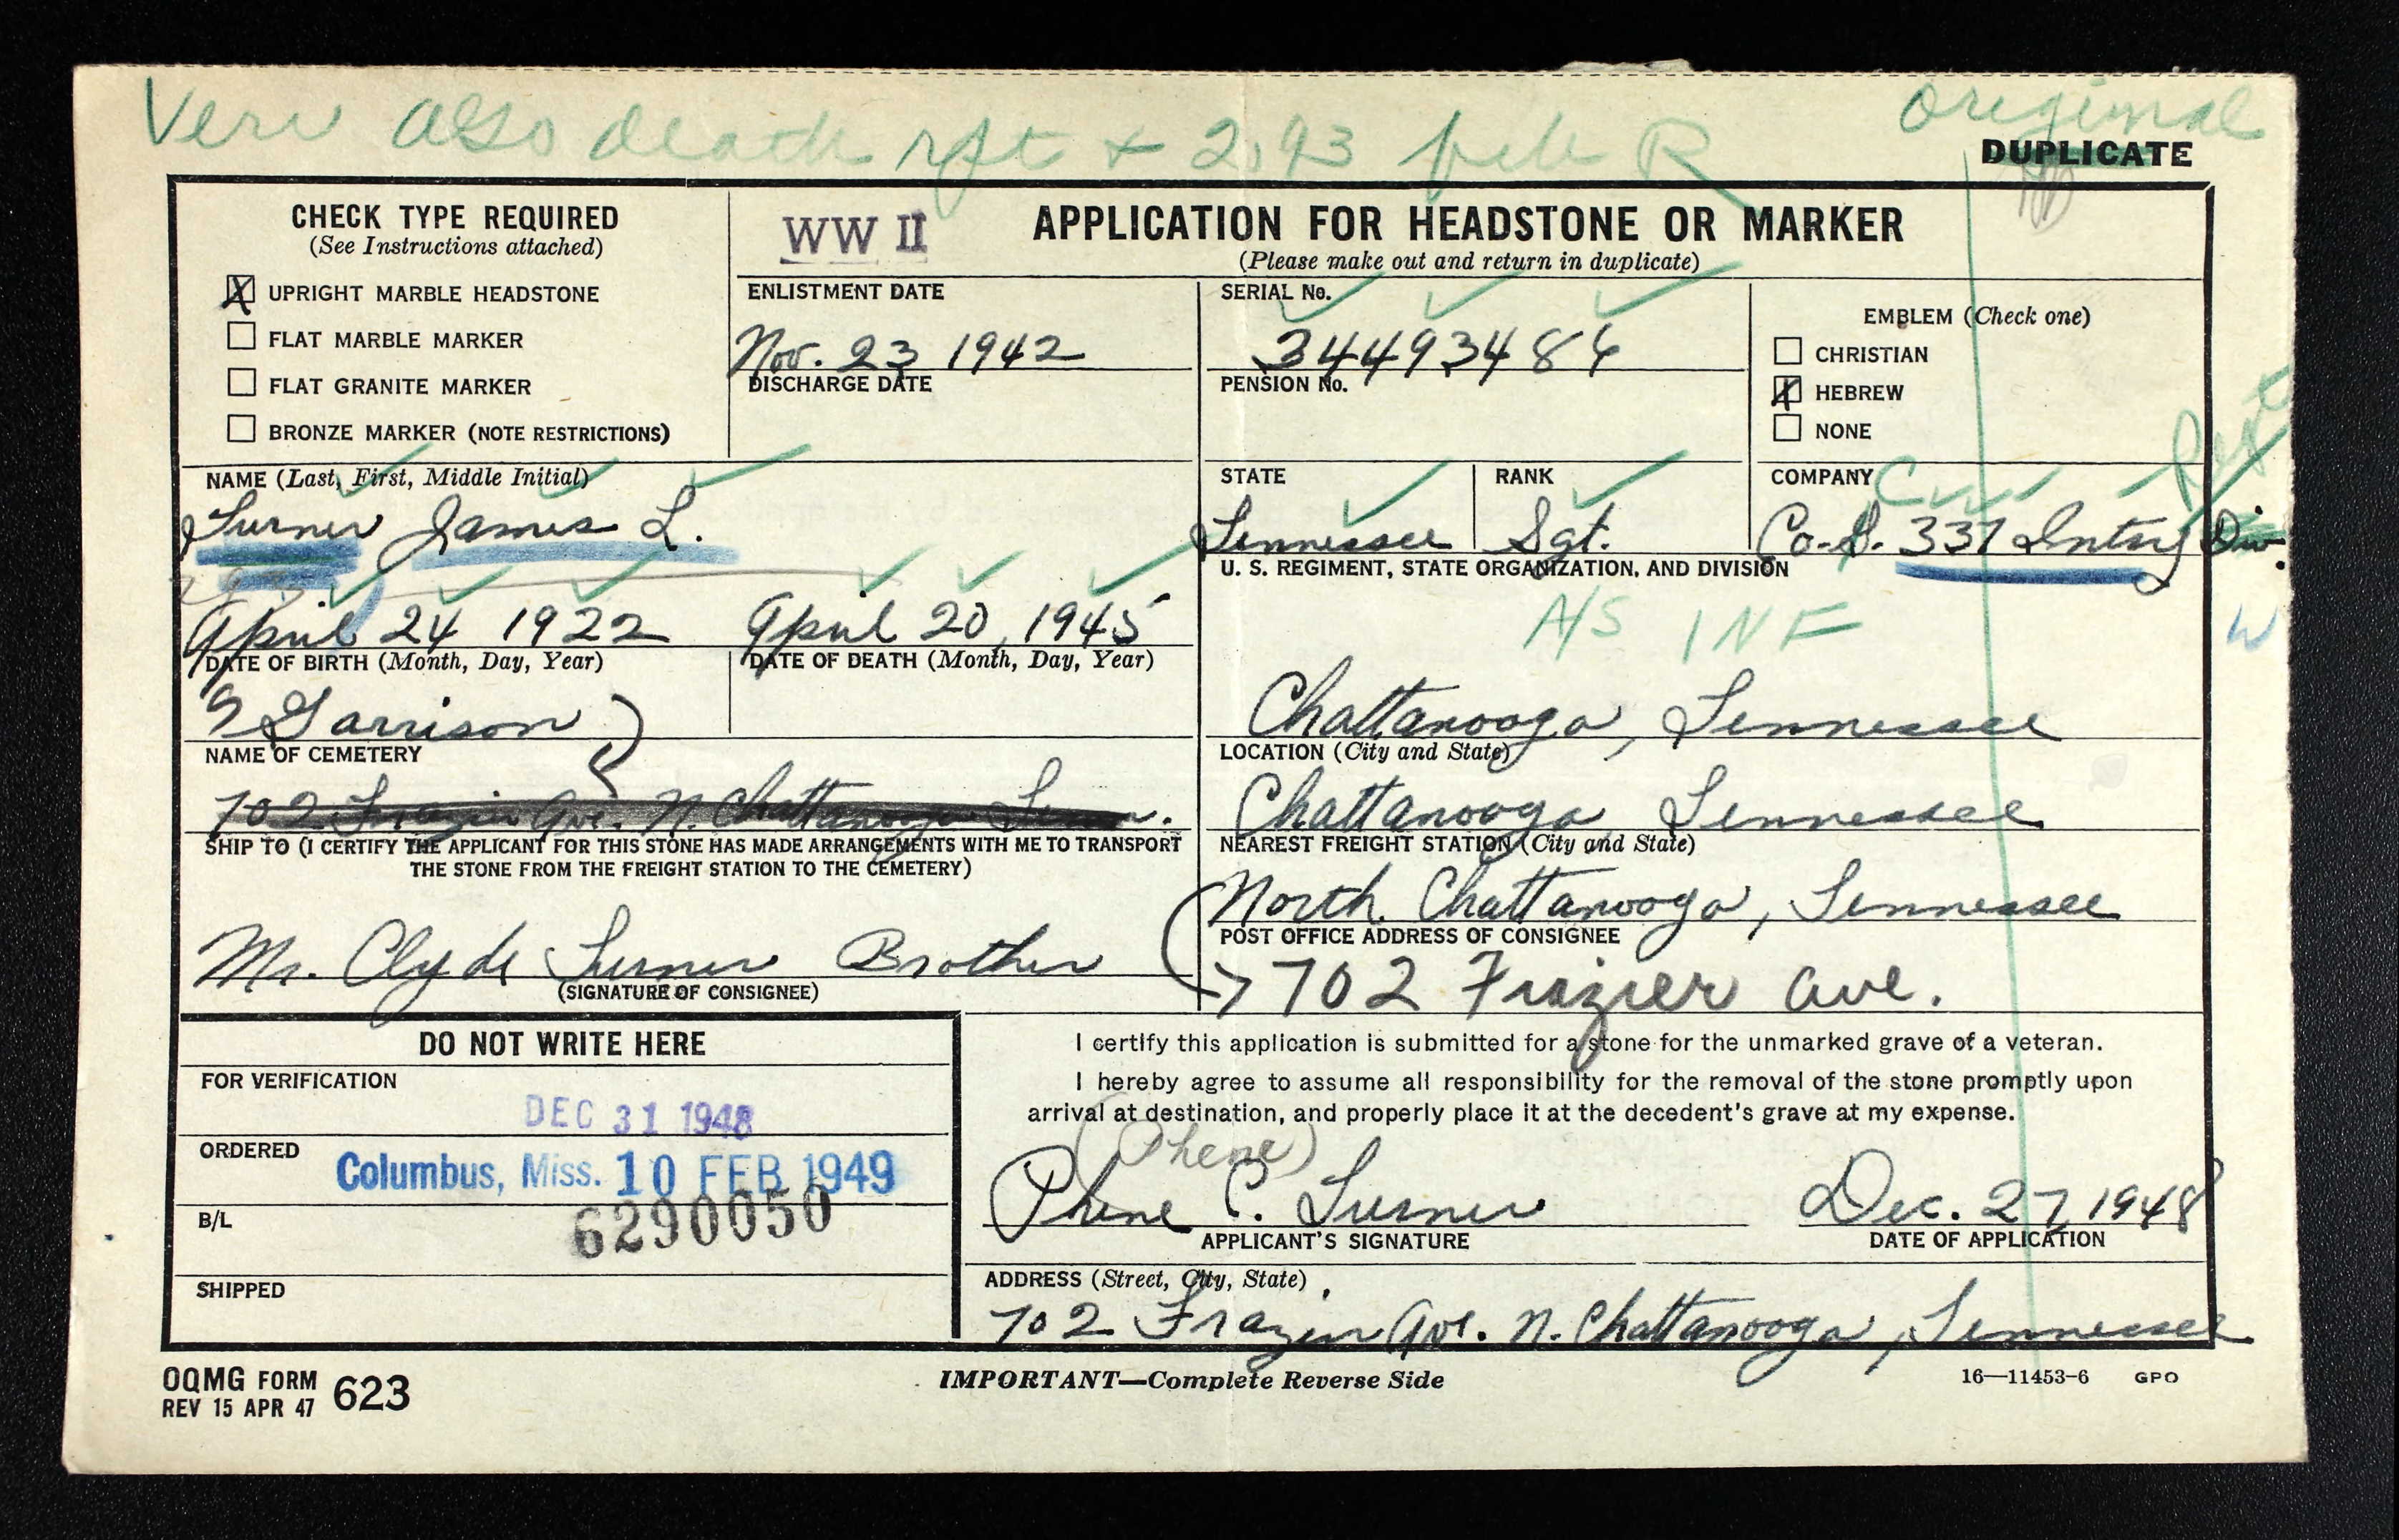 Veri also death rpt + 293 file R
original
DUPLICATE
CHECK TYPE REQUIRED
(See Instructions attached)
X UPRIGHT MARBLE HEADSTONE
FLAT MARBLE MARKER
FLAT GRANITE MARKER
BRONZE MARKER (NOTE RESTRICTIONS)
WW II
APPLICATION FOR HEADSTONE OR MARKER
(Please make out and return in duplicate)
ENLISTMENT DATE
Nov. 23 1942
DISCHARGE DATE
SERIAL No.
34493486
PENSION No.
EMBLEM (Check one)
CHRISTIAN
X HEBREW
NONE
NAME (Last, First, Middle Initial)
Turner James L.
STATE
Tennessee
RANK
Sgt.
COMPANY
Co. 337 Intry Div.
U. S. REGIMENT, STATE ORGANIZATION, AND DIVISION
A/S INF
W
April 24 1922
DATE OF BIRTH (Month, Day, Year)
April 20, 1945
DATE OF DEATH (Month, Day, Year)
Garrison
NAME OF CEMETERY
Chattanooga, Tennessee
LOCATION (City and State)
702 Frazier Ave. N. Chattanooga Tenn.
SHIP TO (I CERTIFY THE APPLICANT FOR THIS STONE HAS MADE ARRANGEMENTS WITH ME TO TRANSPORT
THE STONE FROM THE FREIGHT STATION TO THE CEMETERY)
Chattanooga Tennessee
NEAREST FREIGHT STATION (City and State)
North Chattanooga, Tennessee
POST OFFICE ADDRESS OF CONSIGNEE
702 Frazier Ave.
Mr. Clyde Turner Brother
(SIGNATURE OF CONSIGNEE)
DO NOT WRITE HERE
FOR VERIFICATION
DEC 31 1948
ORDERED
Columbus, Miss. 10 FEB 1949
B/L
6290050
SHIPPED
I certify this application is submitted for a stone for the unmarked grave of a veteran.
I hereby agree to assume all responsibility for the removal of the stone promptly upon
arrival at destination, and properly place it at the decedent's grave at my expense.
(Phene)
Phene C. Turner
APPLICANT'S SIGNATURE
Dec. 27, 1948
DATE OF APPLICATION
ADDRESS (Street, City, State)
702 Frazier Ave. N. Chattanooga, Tennessee
OQMG FORM 623
REV 15 APR 47
IMPORTANT—Complete Reverse Side
16—11453-6 GPO